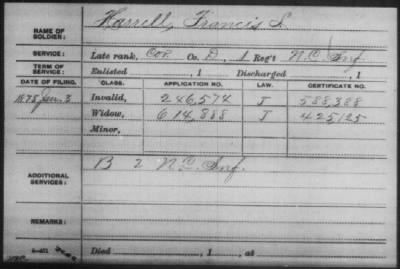 NAME OF SOLDIER: Harrell, Francis S.
SERVICE: Late rank, Cor Co. D, 1 Reg't N.C. Inf.
TERM OF SERVICE: Enlisted , 1 Discharged , 1
DATE OF FILING. CLASS. APPLICATION NO. LAW. CERTIFICATE NO.
1878 Jan. 3 Invalid, 246,574 J 588,388
Widow, 614,888 J 425,125
Minor,
ADDITIONAL SERVICES: B 2 N.C. Inf.
REMARKS:
Died , 1 , at